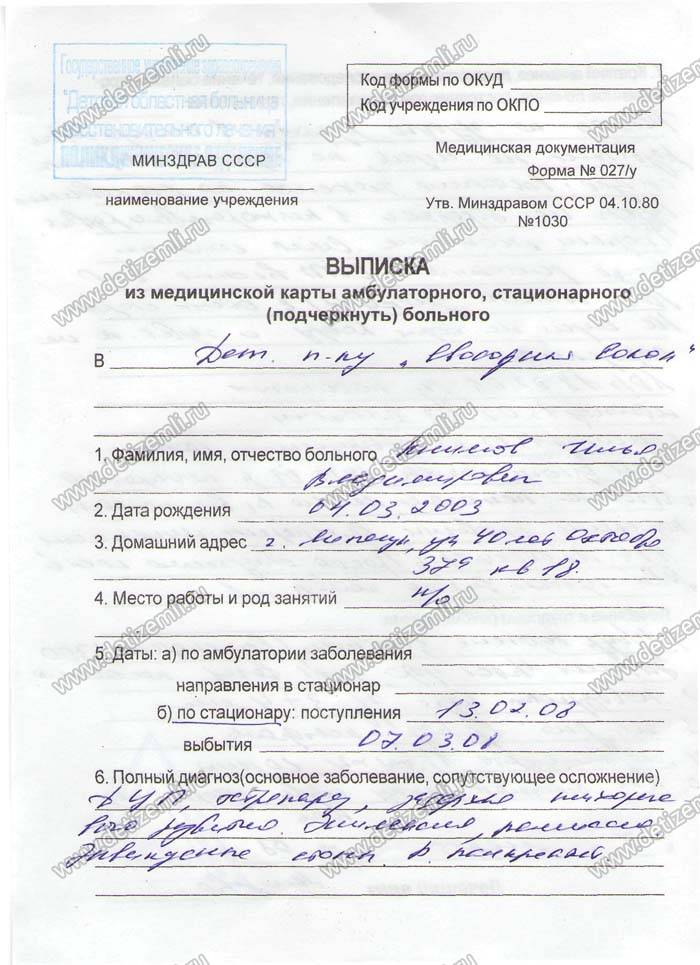 Государственное учреждение здравоохранения
"Детская областная больница
восстановительного лечения"
Код формы по ОКУД
Код учреждения по ОКПО
МИНЗДРАВ СССР
наименование учреждения
Медицинская документация
Форма № 027/у
Утв. Минздравом СССР 04.10.80
№1030
ВЫПИСКА
из медицинской карты амбулаторного, стационарного
(подчеркнуть) больного
В Дет. п-ку „ Свободный Сокол "
1. Фамилия, имя, отчество больного Илья
Владимирович
2. Дата рождения 04.03.2003
3. Домашний адрес г. Липецк, ул 40 лет Октября
37а кв 18.
4. Место работы и род занятий н/о
5. Даты: а) по амбулатории заболевания
направления в стационар
б) по стационару: поступления 13.02.08
выбытия 07.03.08
6. Полный диагноз(основное заболевание, сопутствующее осложнение)
ДЦП, тетрапарез, задержка психорече
вого развития. Эпилепсия, ремиссия.
Эквинусные стопы. Р. панкреатит
www.detizemli.ru